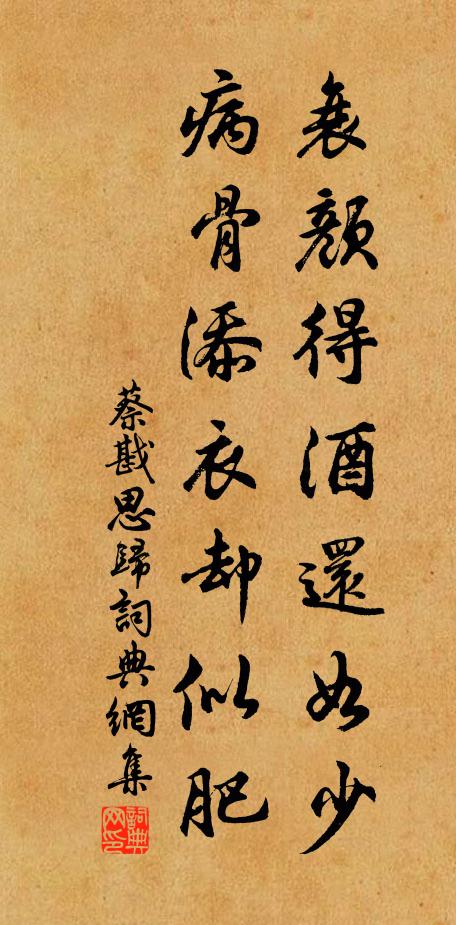 衰顏得酒還如少
病骨添衣却似肥
蔡戡思歸詞典網集
詞典網印